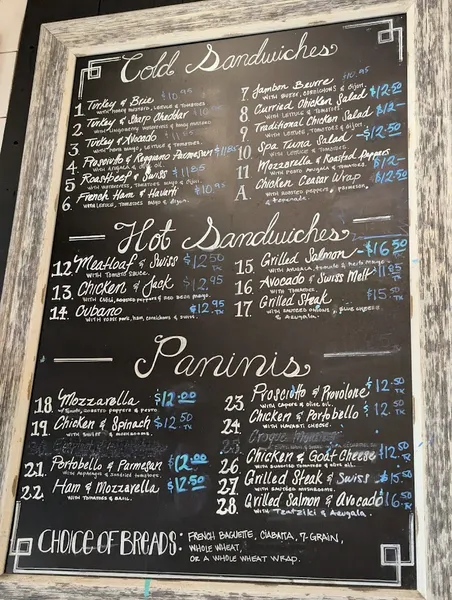 Cold Sandwiches
1. Turkey & Brie $10.95
with honey mustard, lettuce & tomatoes.
2. Turkey & Sharp Cheddar
3. Turkey & Avocado $11.85
with mayo, lettuce & tomatoes.
4. Prosciutto & Reggiano Parmesan $11.85
with arugula & olive oil.
5. Roast Beef & Swiss $11.85
6. French Ham & Havarti $10.95
with lettuce, tomatoes, mayo & dijon.
7. Jambon Beurre $10.95
with butter, cornichons & dijon.
8. Curried Chicken Salad $12.50
with lettuce & tomatoes.
9. Traditional Chicken Salad $12-
with lettuce, tomatoes & dijon.
10. Spa Tuna Salad $12.50
with lettuce & tomatoes.
11. Mozzarella & Roasted Peppers $12-
with pesto, arugula & tomatoes.
A. Chicken Ceasar Wrap $12.50
with roasted peppers, parmesan,
& romaine.
Hot Sandwiches
12. Meatloaf & Swiss $12.50
with tomato sauce.
13. Chicken & Jack $12.95
with chili, roasted peppers & red bean mayo.
14. Cubano $12.95
with roast pork, ham, cornichons & swiss.
15. Grilled Salmon $16.50
with arugula, tomato & pesto mayo.
16. Avocado & Swiss Melt $11.95
with tomatoes.
17. Grilled Steak $15.50
with sauteed onions, blue cheese
& arugula.
Paninis
18. Mozzarella $12.00
with roasted peppers & pesto.
19. Chicken & Spinach $12.50
21. Portobello & Parmesan $12.00
with asparagus & sundried tomatoes.
22. Ham & Mozzarella $12.50
with tomatoes & basil.
23. Prosciutto & Provolone $12.50
with capers & olive oil.
24. Chicken & Portobello $12.50
with havarti cheese.
25. Croque
26. Chicken & Goat Cheese $12.50
with sundried tomatoes & olive oil.
27. Grilled Steak & Swiss $15.50
with sauteed mushrooms.
28. Grilled Salmon & Avocado $16.50
with Tzatziki & Arugula.
CHOICE OF BREADS: FRENCH BAGUETTE, CIABATTA, 7-GRAIN,
WHOLE WHEAT,
OR A WHOLE WHEAT WRAP.